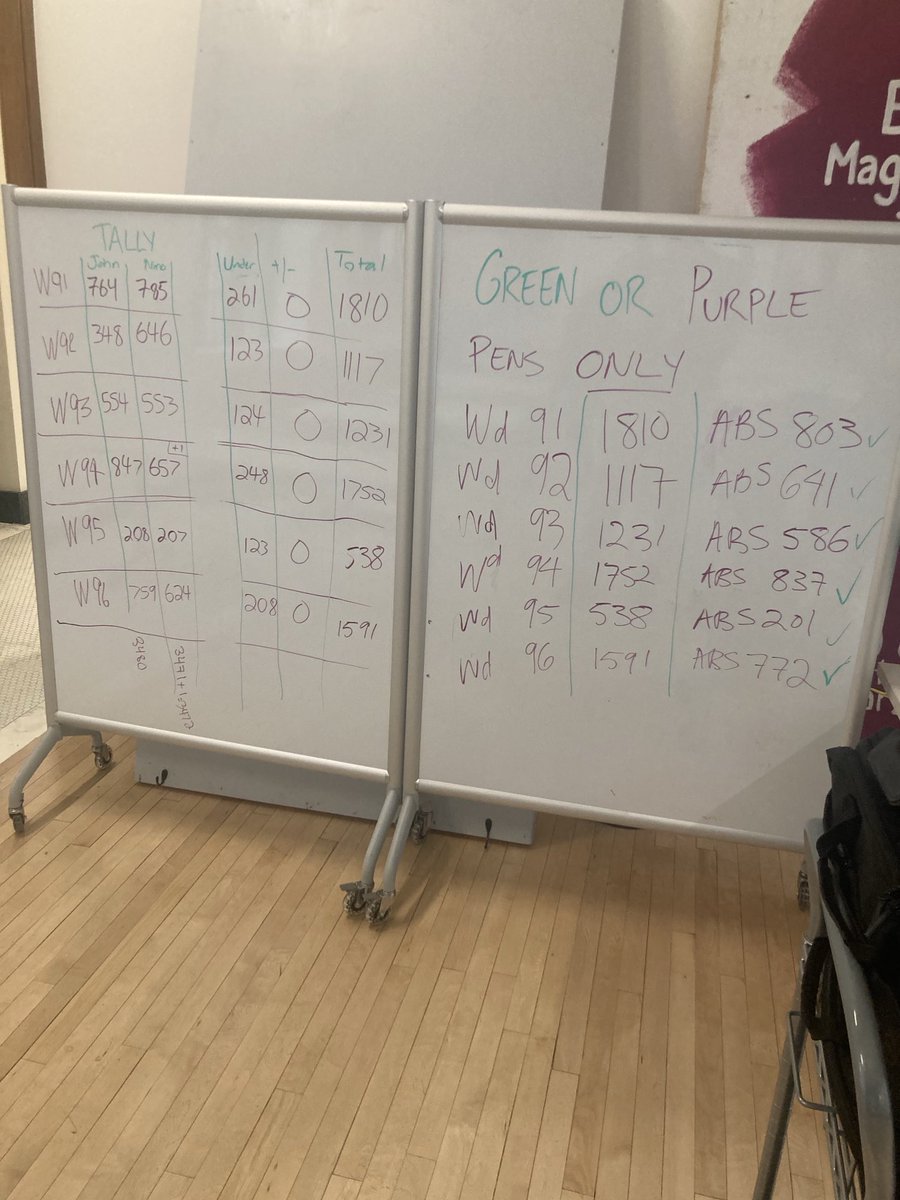 TALLY
John Nino Under +/- Total
W91 764 785 261 0 1810
W92 348 646 123 0 1117
W93 554 553 124 0 1231
+1
W94 847 657 248 0 1752
W95 208 207 123 0 538
W96 759 624 208 0 1591
3480
3471+1=3472
GREEN OR PURPLE
PENS ONLY
Wd 91 1810 ABS 803 ✓
Wd 92 1117 ABS 641 ✓
Wd 93 1231 ABS 586 ✓
Wd 94 1752 ABS 837 ✓
Wd 95 538 ABS 201 ✓
Wd 96 1591 ABS 772 ✓